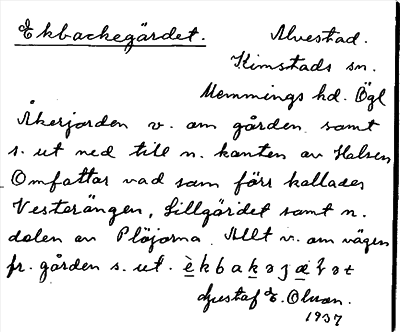 Ekbackegärdet. Alvestad.
Kimstads sn.
Memmings hd. Ögl
Åkerjorden v. om gården samt
s. ut ned till n. kanten av Halsen
Omfattar vad som förr kallades
Vesterängen, Lillgärdet samt n.
delen av Plöjorna. Allt v. om vägen
fr. gården s. ut.
Gustaf E. Olsson.
1937